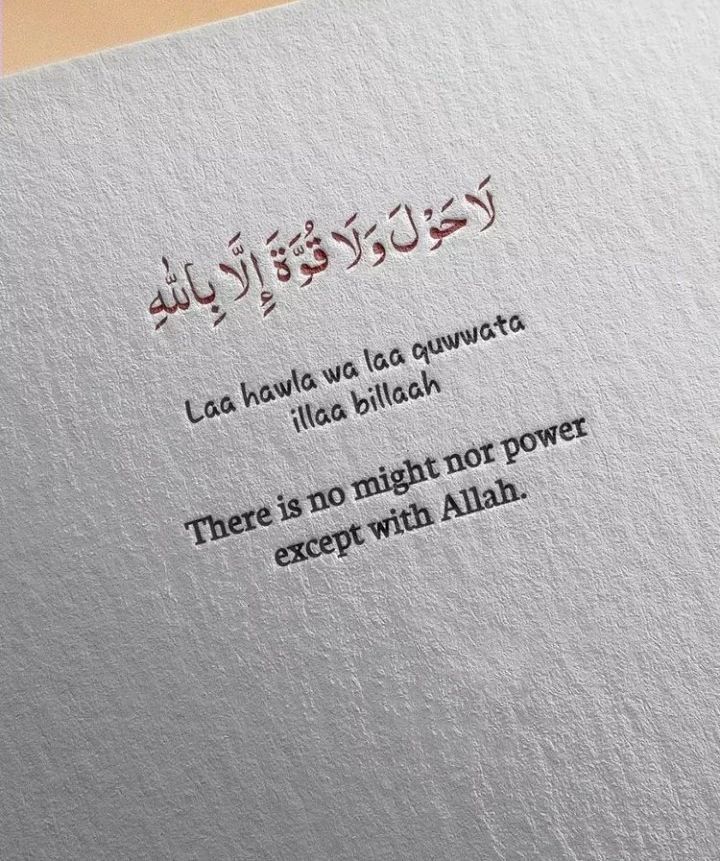 لَا حَوْلَ وَلَا قُوَّةَ إِلَّا بِاللّٰهِ
Laa hawla wa laa quwwata
illaa billaah
There is no might nor power
except with Allah.